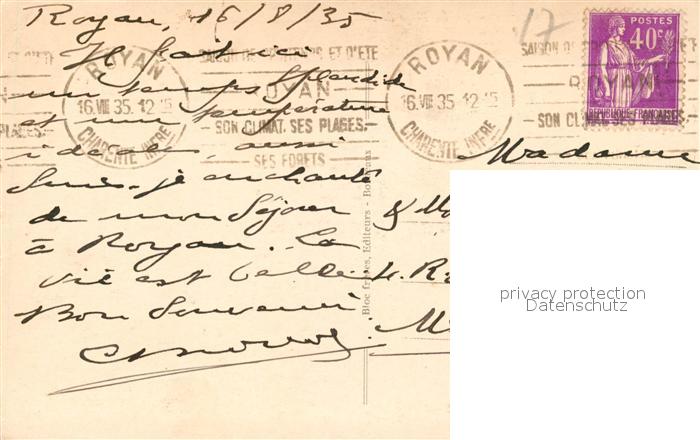 Royan, 16/8/35
Il fait ici
un temps splendide
et une température
idéale, aussi
suis-je enchanté
de mon séjour
à Royan. La
vie est belle.
Bon Souvenir
17
POSTES
40c
REPUBLIQUE FRANÇAISE
ROYAN
16.VIII 35. 12 15
CHARENTE INFRE
SAISON DE PRINTEMPS ET D'ETE
ROYAN
SON CLIMAT. SES PLAGES.
SES FORETS
ROYAN
16.VIII 35 12 15
CHARENTE INFRE
SAISON DE
ROYAN
SON CLIMAT. SES PLAGES
PLAGES.
Madame
& M
4. R
M
Bloc frères, Editeurs - Bordeaux
privacy protection
Datenschutz